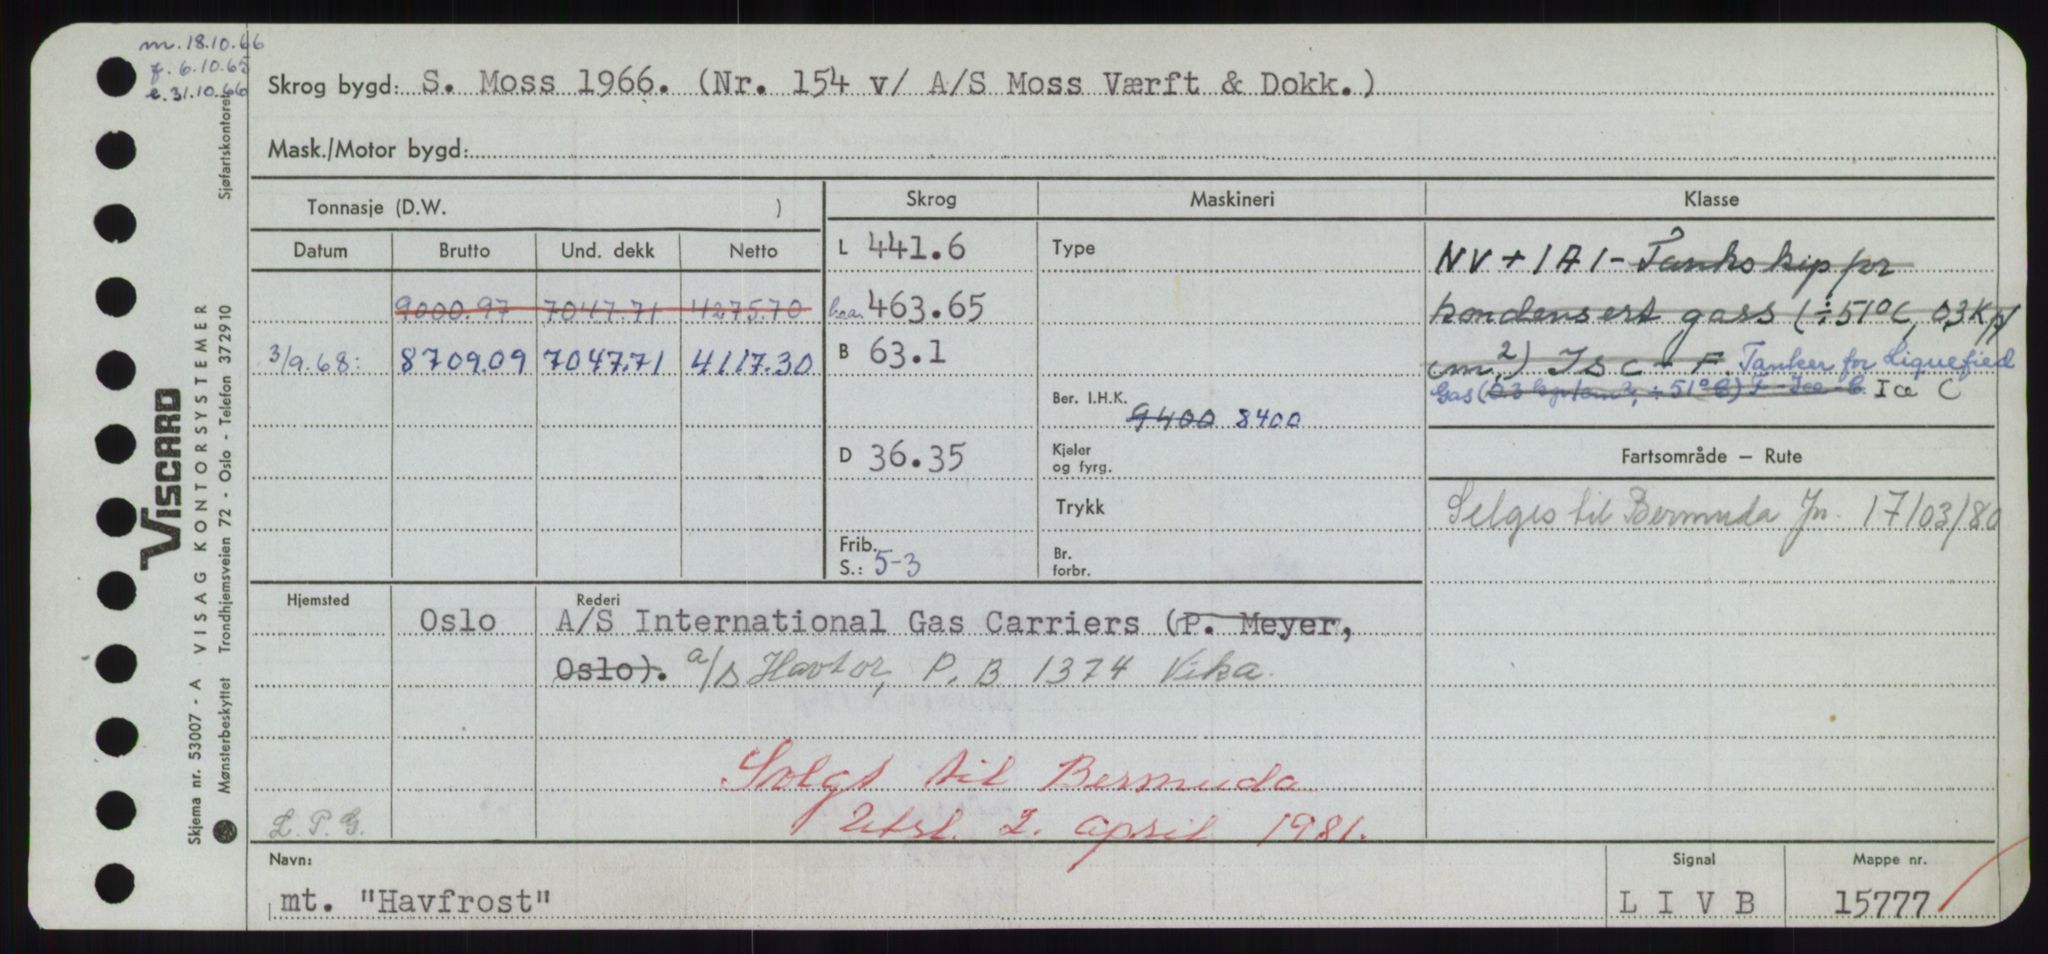 m. 18.10.66
f. 6.10.65
e. 31.10.66
Skrog bygd: S. Moss 1966. (Nr. 154 v/ A/S Moss Værft & Dokk.)
Mask./Motor bygd:
Tonnasje (D.W. )
Skrog Maskineri Klasse
Datum Brutto Und. dekk Netto
L 441.6 Type NV + 1A1 - Tankskip for
9000.97 7047.71 4275.70 l.o.a. 463.65 kondensert gass (÷51°C, 0,3 Kp/
3/9.68: 8709.09 7047.71 4117.30 B 63.1 cm.2) Is C - F. Tanker for Liquefied
Gas (0.3 kp/cm2, ÷51°C) F - Ice - C. Ice C
Ber. I.H.K. 9400 8400
D 36.35 Kjeler og fyrg. Fartsområde – Rute
Trykk Selges til Bermuda Jn. 17/03/80
Frib. S.: 5-3 Br. forbr.
Hjemsted Rederi
Oslo A/S International Gas Carriers (P. Meyer,
Oslo). a/s Havtor, P.B 1374 Vika.
Solgt til Bermuda
Utsl. 2. april 1981.
L.P.G.
Navn: Signal Mappe nr.
mt. "Havfrost" L I V B 15777
Sjøfartskontoret
VISCARD
Skjema nr. 53007 - A VISAG KONTORSYSTEMER
Mønsterbeskyttet Trondhjemsveien 72 - Oslo - Telefon 372910